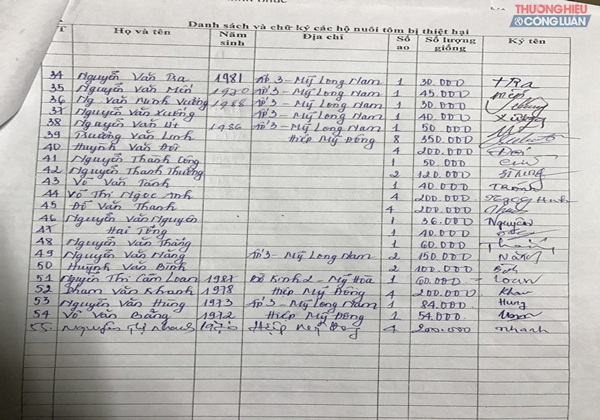 THƯƠNG HIỆU
& CÔNG LUẬN
Danh sách và chữ ký các hộ nuôi tôm bị thiệt hại
T Họ và tên Năm sinh Địa chỉ Số ao Số lượng giống Ký tên
34 Nguyễn Văn Tra 1981 Ấp 3 - Mỹ Long Nam 1 30.000 Tra
35 Nguyễn Văn 1970 Ấp 3 - Mỹ Long Nam 1 45.000
36 Ng Văn Minh Vương 1988 Ấp 3 - Mỹ Long Nam 1 30.000
37 Nguyễn Văn Xưởng Ấp 3 - Mỹ Long Nam 1 40.000
38 Nguyễn Văn Út 1986 Ấp 3 - Mỹ Long Nam 1 50.000
39 Trương Văn Linh Hiệp Mỹ Đông 8 350.000
40 Huỳnh Văn Đôi 4 200.000
41 Nguyễn Thành Công 1 50.000
42 Nguyễn Thanh Thương 2 120.000
43 Võ Văn Tánh 1 40.000
44 Võ Thị Ngọc Anh 4 200.000
45 Đỗ Văn Thanh 4 200.000
46 Nguyễn Văn Nguyên 1 36.000 Nguyên
47 Hai Tông 1 40.000
48 Nguyễn Văn Thắng 1 60.000
49 Nguyễn Văn Năng Ấp 3 - Mỹ Long Nam 2 150.000
50 Huỳnh Văn Bình 2 100.000 Bình
51 Nguyễn Thị Cẩm Loan 1987 Kinh 2 - Mỹ Hòa 1 60.000 Loan
52 Phạm Văn Khanh 1978 Hiệp Mỹ Đông 4 200.000
53 Nguyễn Văn Hùng 1973 Ấp 3 - Mỹ Long Nam 1 84.000 Hung
54 Võ Văn Bằng 1972 Hiệp Mỹ Đông 1 54.000
55 Nguyễn Thị Hiệp Mỹ Đông 4 200.000 nhanh